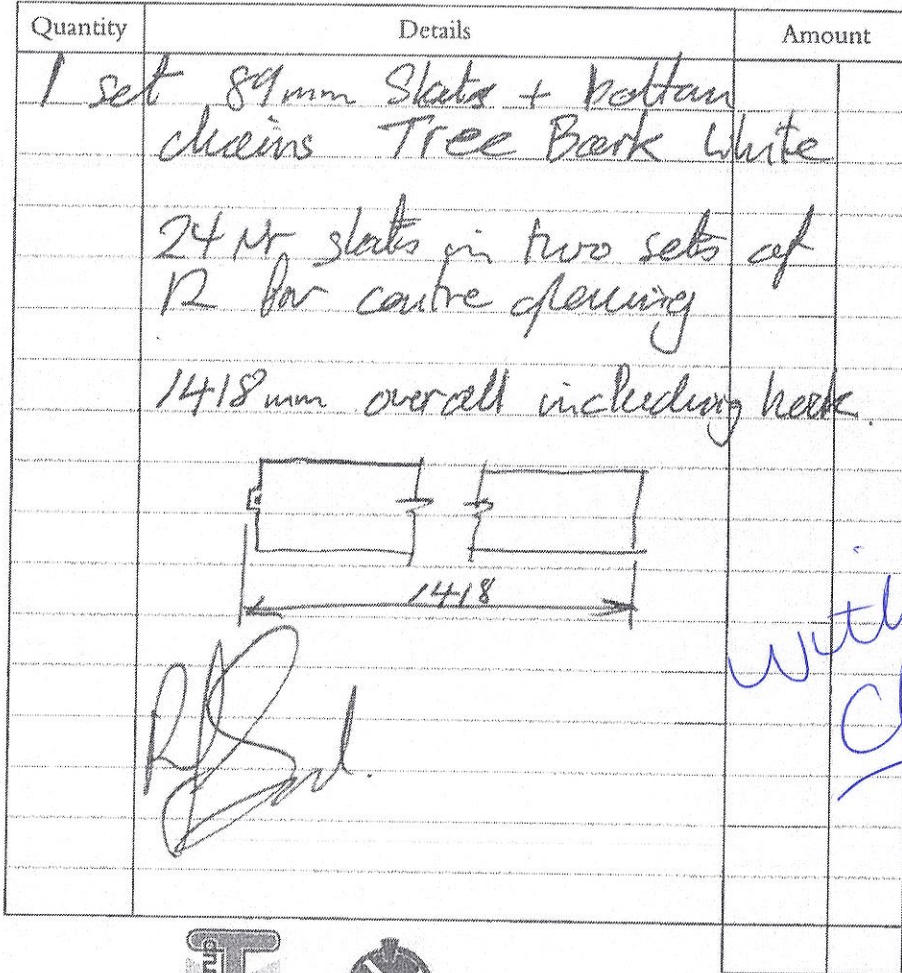 Quantity Details Amount
1 set 89mm Slats + bottom
chains Tree Bark White
24 Nr slats in two sets of
12 for centre opening
1418mm overall including hook.
1418
With